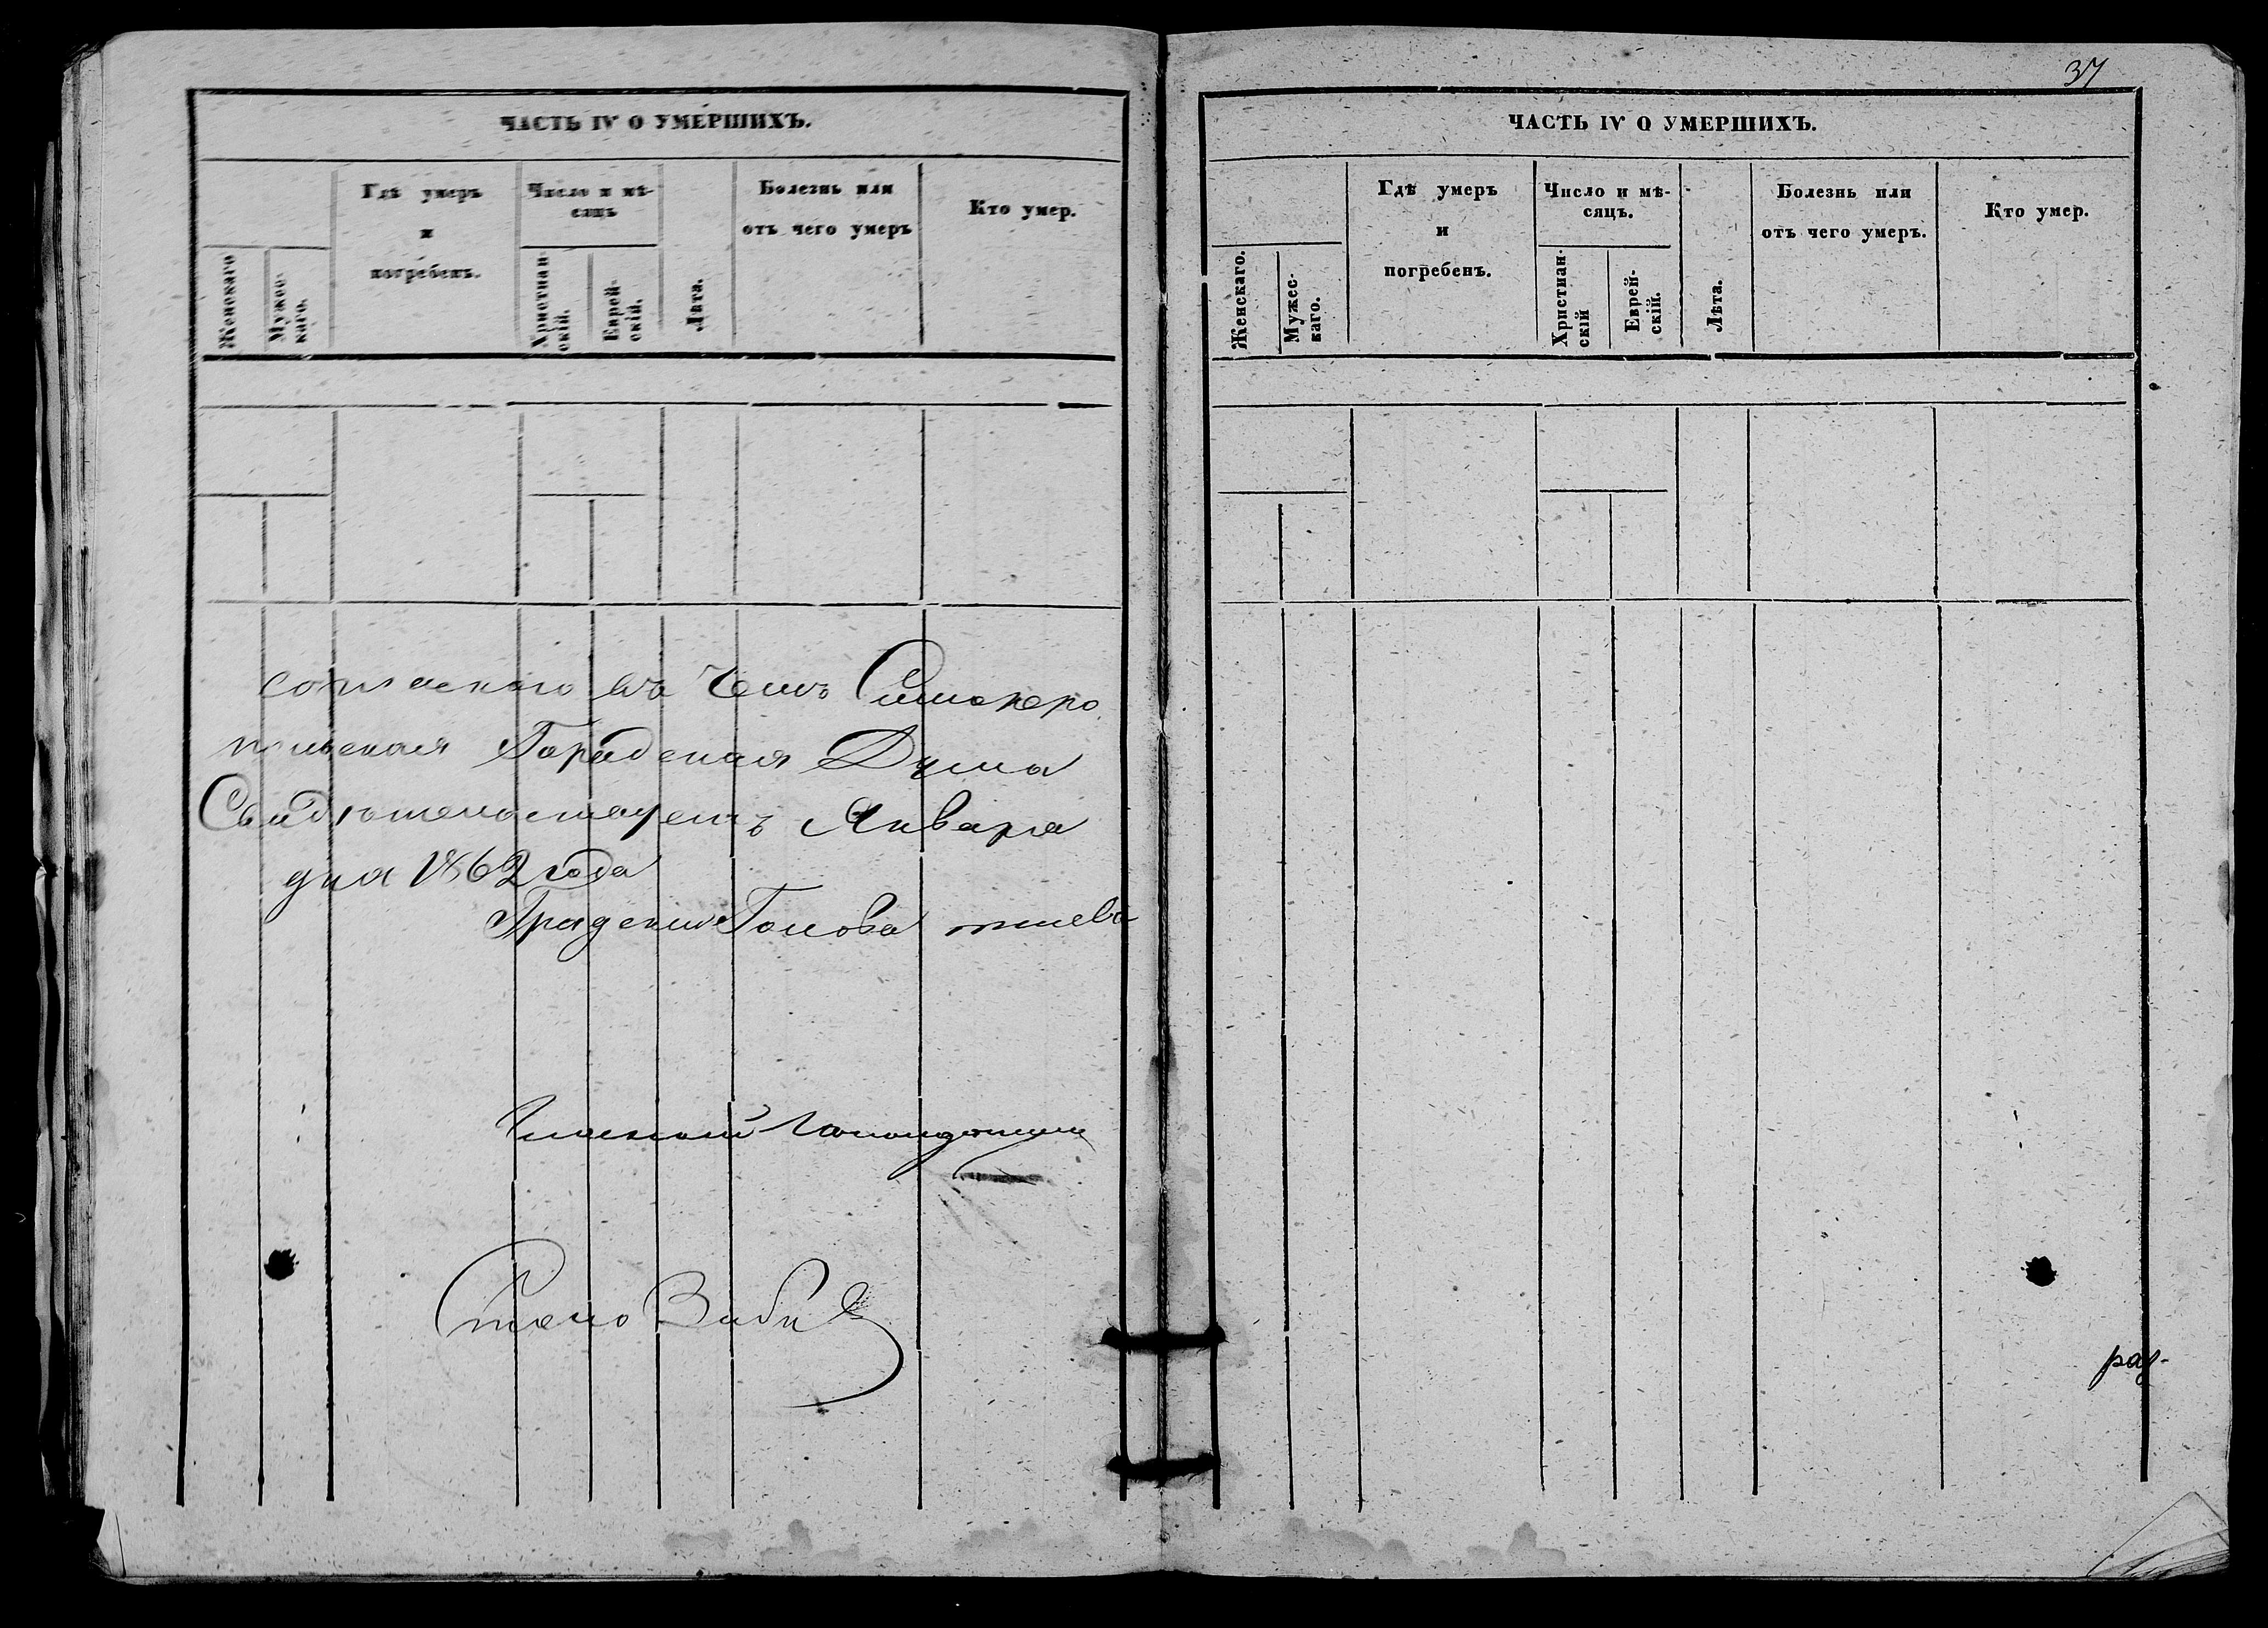 ЧАСТЬ IV О УМЕРШИХЪ.
Женскаго
Мужес-
каго.
Гдѣ умеръ
и
погребенъ.
Число и мѣ-
сяцъ
Христиан-
скій.
Еврей-
скій.
Лѣта.
Болезнь или
отъ чего умеръ
Кто умер.
въ чемъ Симферо
польская Городская Дума
Свидѣтельствуетъ Января
дня 1862 года
Градской Голова
Гласный
37
ЧАСТЬ IV О УМЕРШИХЪ.
Женскаго.
Мужес-
каго.
Гдѣ умеръ
и
погребенъ.
Число и мѣ-
сяцъ.
Христиан-
скій
Еврей-
скій.
Лѣта.
Болезнь или
отъ чего умеръ.
Кто умер.